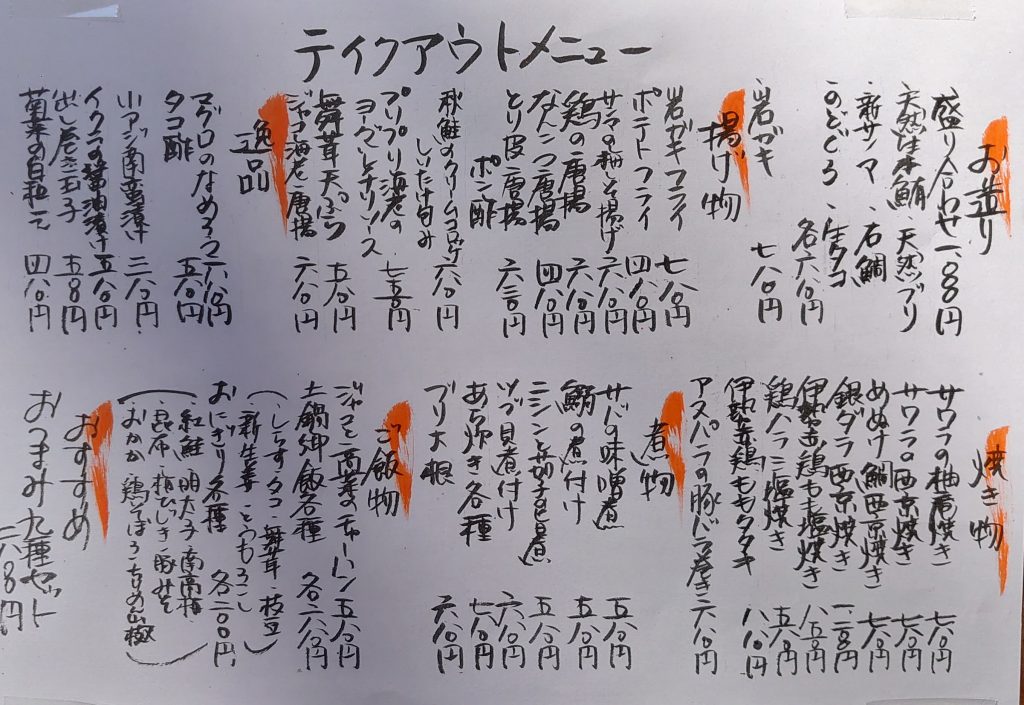 テイクアウトメニュー
お造り
盛り合わせ 一八〇円
天然生本鮪 天然ブリ
新サンマ 石鯛
のどぐろ 生タコ
各六八〇円
岩ガキ 七八〇円
揚げ物
岩ガキフライ 七八〇円
ポテトフライ 四八〇円
サワラの柚しそ揚げ 六八〇円
鶏の唐揚 六八〇円
なんこつ唐揚 四八〇円
とり皮唐揚
ポン酢 六三〇円
秋鮭のクリームコロッケ
しいたけ包み 六八〇円
プリプリ海老の
マヨネーズチリソース 七五〇円
舞茸天ぷら 五八〇円
ジャコ海老唐揚 六八〇円
逸品
マグロのなめろう 六八〇円
タコ酢 五八〇円
小アジ南蛮漬け 三八〇円
イクラの醤油漬け 五八〇円
出し巻き玉子 五八〇円
菊菜の白和え 四八〇円
焼き物
サワラの柚庵焼き 七八〇円
サワラ西京焼き 七八〇円
めぬけ鯛西京焼き 七八〇円
銀ダラ西京焼き
伊勢赤鶏もも塩焼き 八五〇円
鶏ハラミ塩焼き 五八〇円
伊勢赤鶏ももタタキ 八八〇円
アスパラの豚バラ巻き 六八〇円
煮物
サバの味噌煮 五八〇円
鰯の煮付け 五八〇円
ニシンと茄子の煮 五八〇円
ツブ貝煮付け 六八〇円
あら炊き各種 七八〇円
ブリ大根 六八〇円
ご飯物
ジャコと高菜のチャーハン 五八〇円
土鍋御飯各種 各二六八〇円
(しらす タコ 舞茸 枝豆
新生姜 とうもろこし)
おにぎり各種 各二〇〇円
(紅鮭 明太子 南高梅
昆布 梅ひじき 豚みそ
おかか 鶏そぼろ ちりめん山椒)
おすすめ
おつまみ九種セット